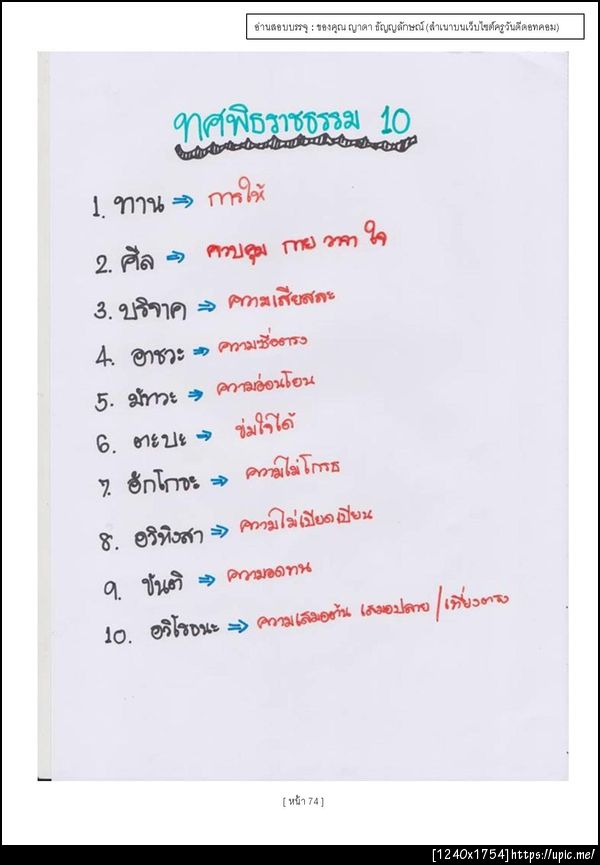 อ่านสอบบรรจุ : ของคุณ ญาดา ธัญญลักษณ์ (สำเนาบนเว็บไซต์ครูวันดีดอทคอม)
ทศพิธราชธรรม 10
1. ทาน ⇒ การให้
2. ศีล ⇒ ควบคุม กาย วาจา ใจ
3. บริจาค ⇒ ความเสียสละ
4. อาชวะ ⇒ ความซื่อตรง
5. มัททวะ ⇒ ความอ่อนโยน
6. ตะบะ ⇒ ข่มใจได้
7. อักโกธะ ⇒ ความไม่โกรธ
8. อวิหิงสา ⇒ ความไม่เบียดเบียน
9. ขันติ ⇒ ความอดทน
10. อวิโรธนะ ⇒ ความเสมอต้น เสมอปลาย / เที่ยงตรง
[ หน้า 74 ]
[1240x1754]https://upic.me/